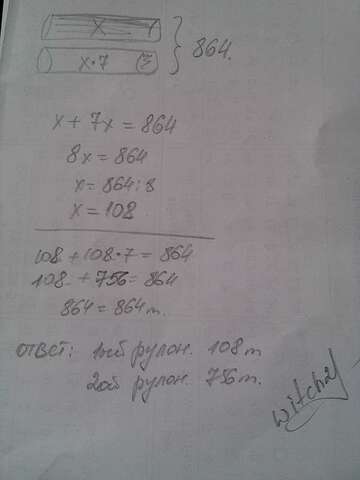 x
x·7
864.
x + 7x = 864
8x = 864
x = 864:8
x = 108
108 + 108·7 = 864
108 + 756 = 864
864 = 864m.
ответ: 1ый рулон. 108m
2ой рулон. 756m.
witch21